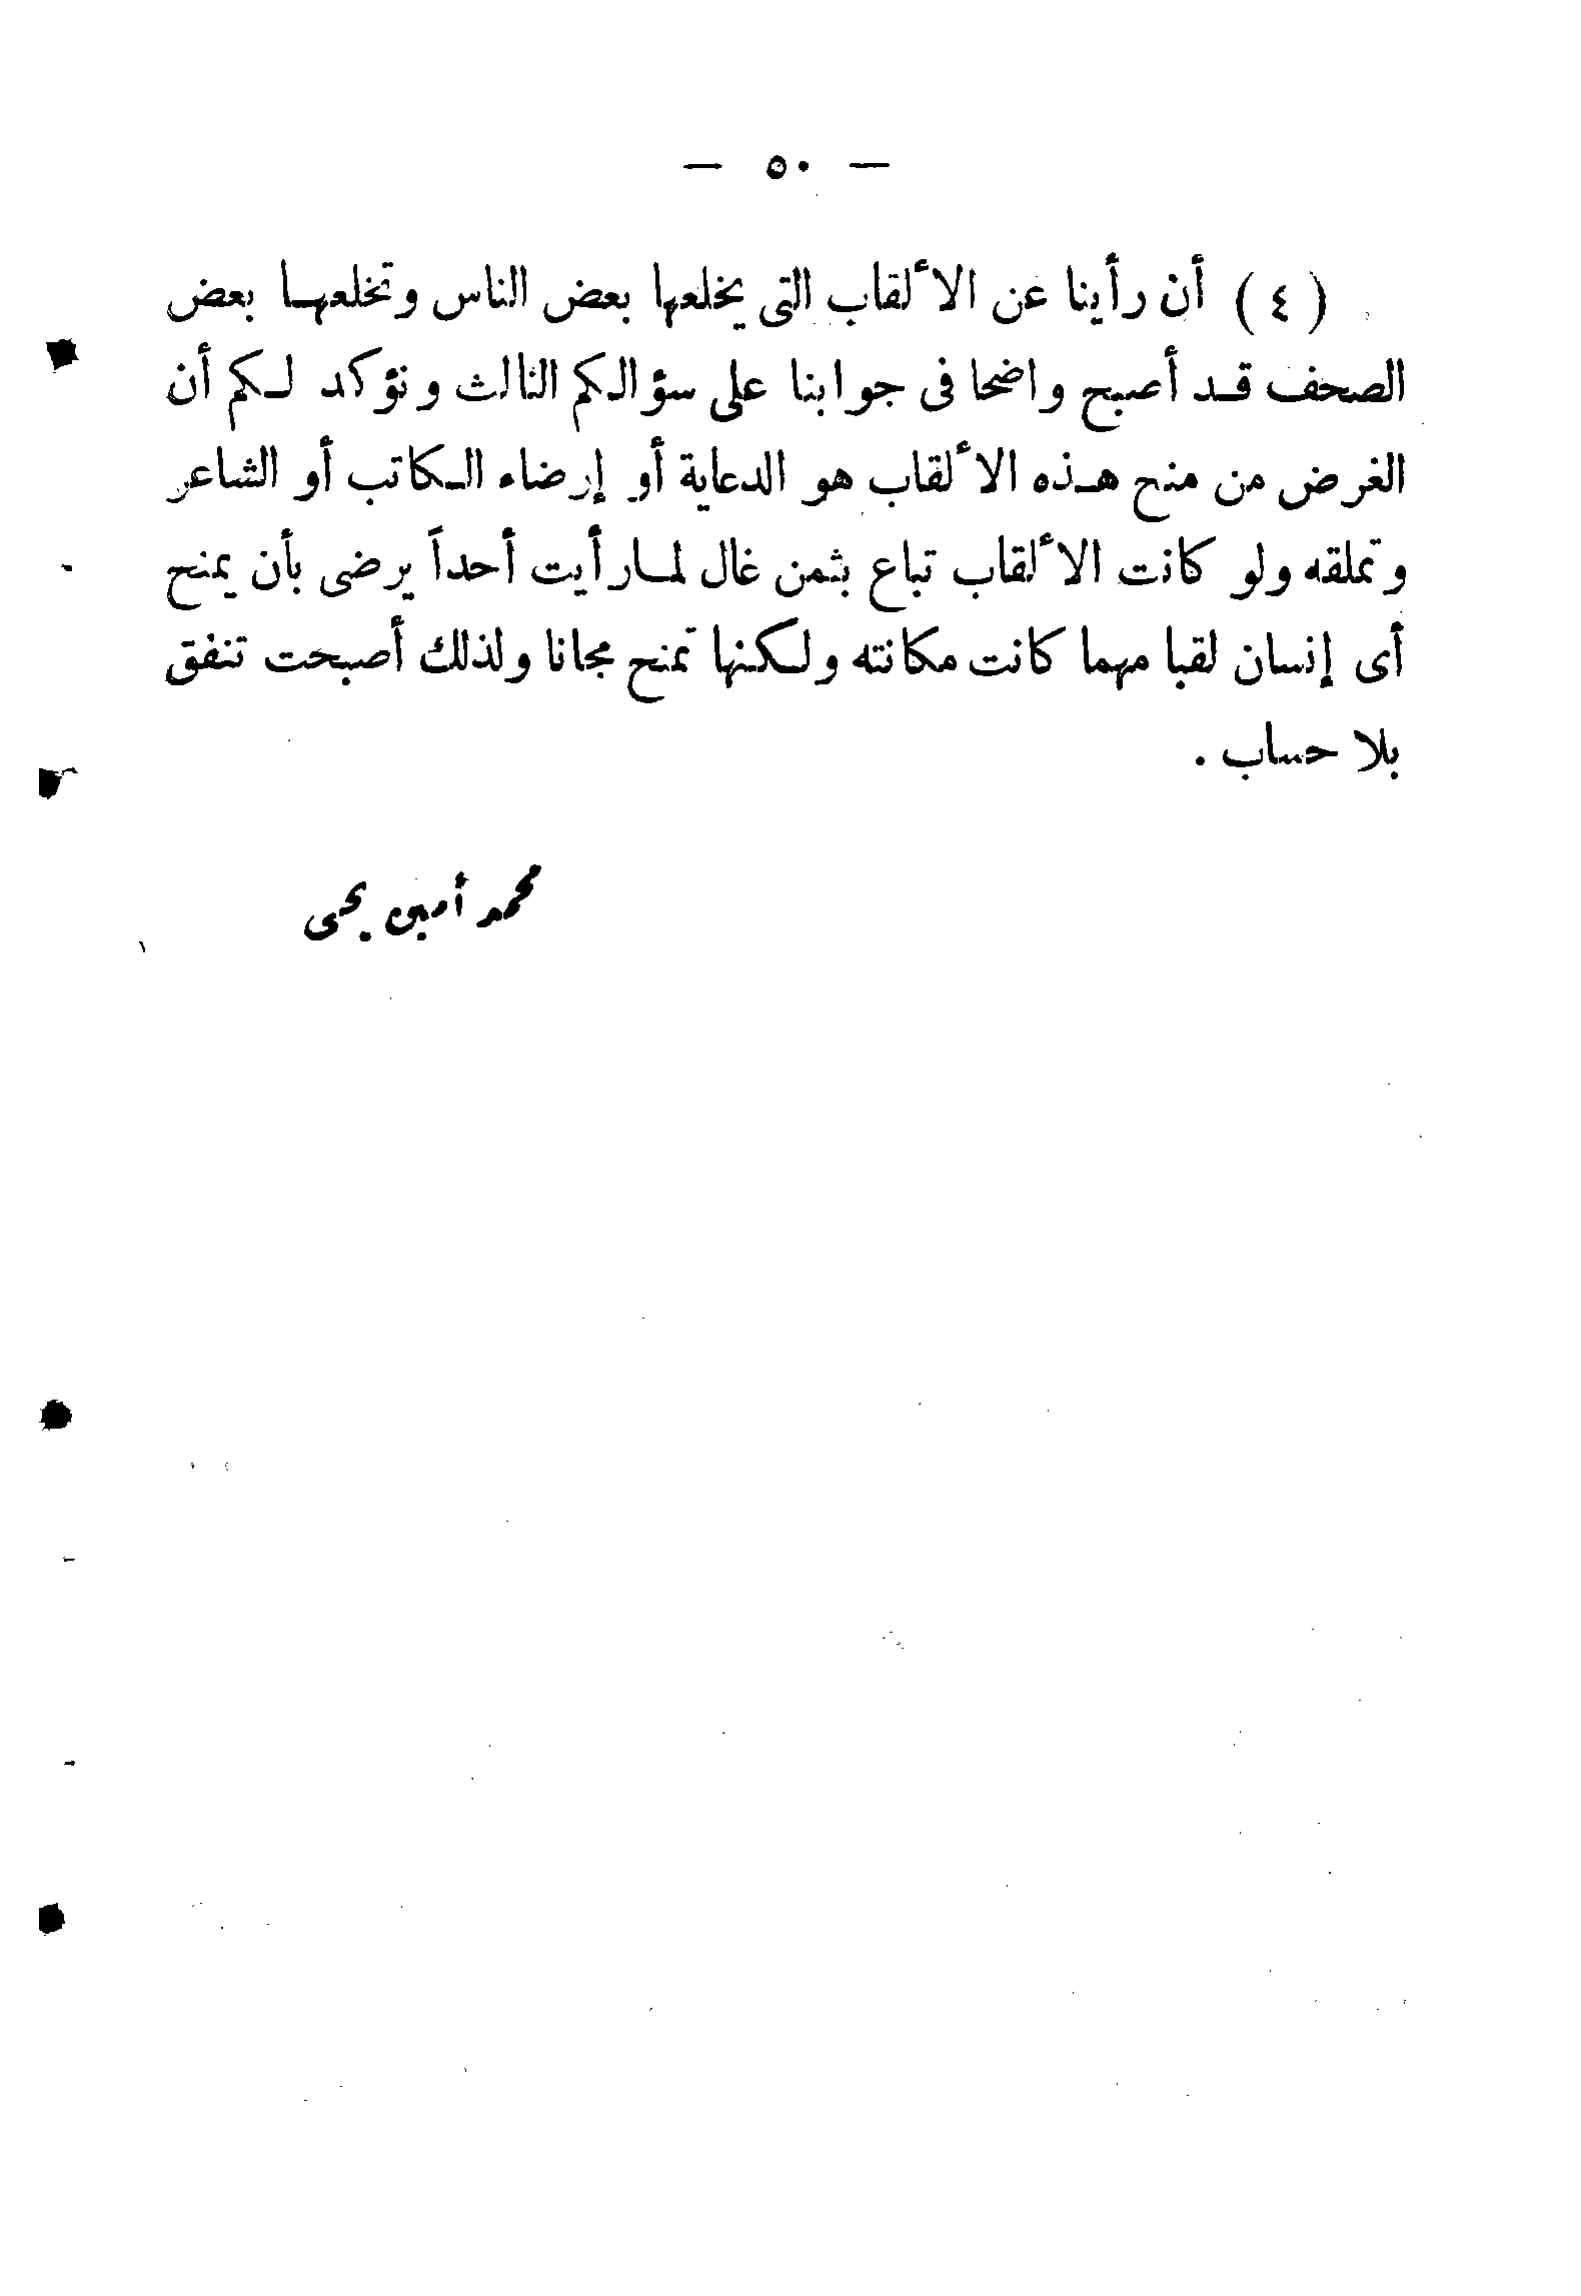 — ٥٠ —
( ٤ ) أن رأينا عن الألقاب التى يخلعها بعض الناس وتخلعها بعض
الصحف قد أصبح واضحا فى جوابنا على سؤالكم الثالث ونؤكد لكم أن
الغرض من منح هذه الألقاب هو الدعاية أو إرضاء الكاتب أو الشاعر
وتملقه ولو كانت الألقاب تباع بثمن غال لما رأيت أحداً يرضى بأن يمنح
أى إنسان لقبا مهما كانت مكانته ولكنها تمنح مجانا ولذلك أصبحت تنفق
بلا حساب .
محمد أمين يحيى